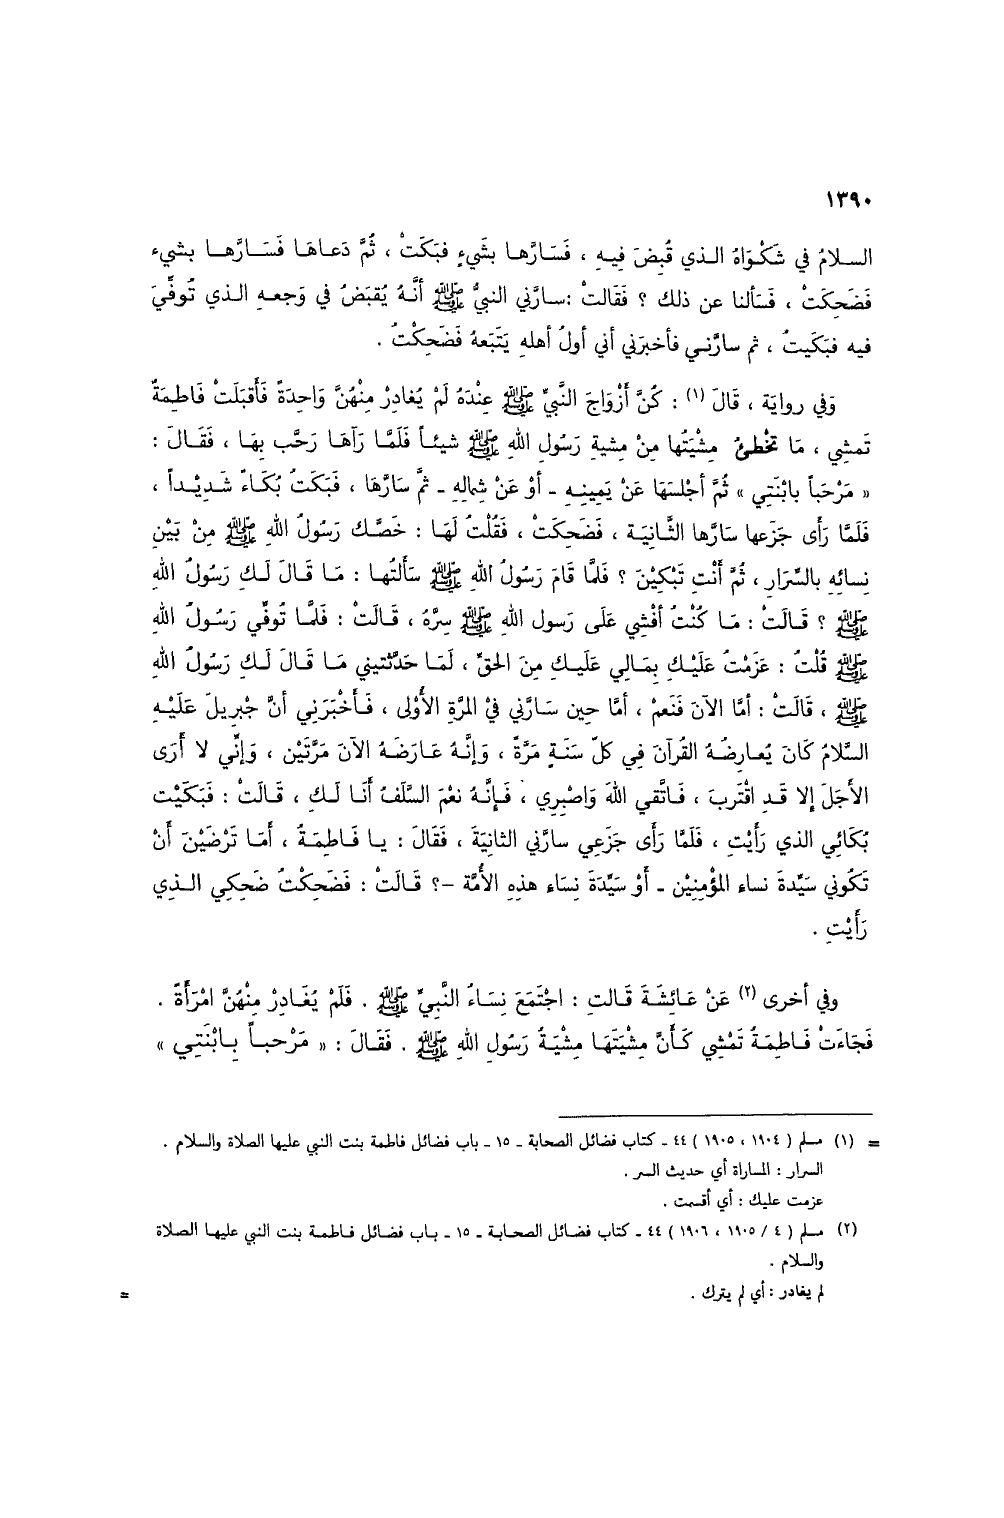 ١٣٩٠
السـلامُ في شَكْـوَاهُ الـذي قُبِضَ فيـهِ ، فَسَـارَّهـا بشَيءٍ فبَكَتْ ، ثُمَّ دَعـاهَـا فَسَـارَّهـا بشيء
فَضَحِكَتْ ، فَسَألنا عن ذلك ؟ فَقَالتْ :سـارَّني النبيُّ ﷺ أنَّـهُ يُقبَضُ في وَجعـهِ الـذي تُوفِّيَ
فيه فبَكَيتُ ، ثم سارَّنـي فأخبرَني أني أولُ أهلهِ يَتَبَعهُ فَضَحِكْتُ .
وَفي روايَة ، قَالَ (١) : كُنَّ أزْوَاجَ النَّبيِّ ﷺ عِنْدَهُ لَمْ يُغادِرْ مِنْهُنَّ وَاحِدَةً فَأقبَلَتْ فَاطِمَةُ
تَمشِي ، مَا تخْطئُ مِشْيَتُها مِنْ مِشيةِ رَسُولِ اللهِ ﷺ شيئـاً فَلَمَّا رَآهَـا رَحَّب بهَـا ، فَقَـالَ :
« مَرْحَباً بابْنَتِي » ثُمَّ أجْلسَهَا عَنْ يَمِينِـهِ ـ أوْ عَنْ شِمالِهِ ـ ثمَّ سَارَّهَا ، فَبَكَتْ بُكَـاءً شَـدِيْـداً ،
فَلَمَّا رَأى جَزَعها سَارَّها الثَّـانِيَـة ، فَضَحِكَتْ ، فَقُلْتُ لَهَا : خَصَّـك رَسُولُ اللهِ ﷺ مِنْ بَيْنِ
نِسائِهِ بالسِّرَارِ ، ثُمَّ أنْتِ تَبْكِيْنَ ؟ فَلمَّا قَامَ رَسُولُ اللهِ ﷺ سَألتُهـا : مَـا قَـالَ لَـكِ رَسُولُ اللهِ
ﷺ ؟ قَـالَتْ : مَـا كُنْتُ أفْشِي عَلَى رَسولِ اللهِ ﷺ سِرَّهُ ، قَـالَتْ : فَلَمَّا تُوفِّي رَسُـولُ اللهِ
ﷺ قُلْتُ : عَزَمْتُ عَلَيْـكِ بِمَـالِي عَلَيـكِ مِنَ الحَقِّ ، لَمَـا حَدَّثتِينِي مَـا قَـالَ لَـكِ رَسُولُ اللهِ
ﷺ ، قَالَتْ : أمَّا الآنَ فَنَعَمْ ، أمَّا حِين سَـارَّني فيْ المَرَّةِ الأُوْلى ، فَـأخْبَرَنِي أنَّ جْبرِيلَ عَلَيْـهِ
السَّلامُ كَانَ يُعـارِضُـهُ القُرآنَ فِي كلِّ سَنَـةٍ مَرَّةً ، وَإنَّـهُ عَـارَضَـهُ الآنَ مَرَّتَيْن ، وَإنِّي لا أُرَى
الأجَلَ إلا قَـدِ اقْتَربَ ، فَـاتَّقي اللهَ وَاصْبِرِي ، فَـإنَّـهُ نعْمَ السَّلَفُ أنَـا لَـكِ ، قَـالَتْ : فَبَكَيْت
بُكَائِي الذي رَأيْتِ ، فَلَمَّا رَأى جَزَعِي سارَّني الثانيَةَ ، فَقَالَ : يـا فَـاطِمَـةُ ، أمَـا تَرْضَيْنَ أنْ
تَكُوني سَيِّدةَ نساء المُؤْمِنِيْن ـ أوْ سَيِّدَةَ نِسَاء هذِهِ الأمَّة -؟ قَـالَتْ : فَضَحِكْتُ ضَحِكِي الـذِي
رَأَيْتِ .
وفي أخرى (٢) عَنْ عَـائِشَةَ قَـالتِ : اجْتَمَعَ نِسَـاءُ النَّبِيِّ ﷺ . فَلَمْ يُغَـادِرْ مِنْهُنَّ امْرَأةً .
فَجَاءَتْ فَـاطِمَـةُ تَمْشِي كَـأنَّ مِشْيَتَهـَا مِشْيَـةُ رَسُولِ اللهِ ﷺ . فَقَـالَ : « مَرْحبـاً بـابْنَتِي »
= (١) مسلم ( ١٩٠٤ ، ١٩٠٥ ) ٤٤ ـ كتاب فضائل الصحابة ـ ١٥ ـ باب فضائل فاطمة بنت النبي عليها الصلاة والسلام .
السرار : المساراة أي حديث السر .
عزمت عليك : أي أقسمت .
(٢) مسلم ( ٤ / ١٩٠٥ ، ١٩٠٦ ) ٤٤ ـ كتاب فضائل الصحابة ـ ١٥ ـ باب فضائل فاطمة بنت النبي عليها الصلاة
والسلام .
لم يغادر : أي لم يترك . =